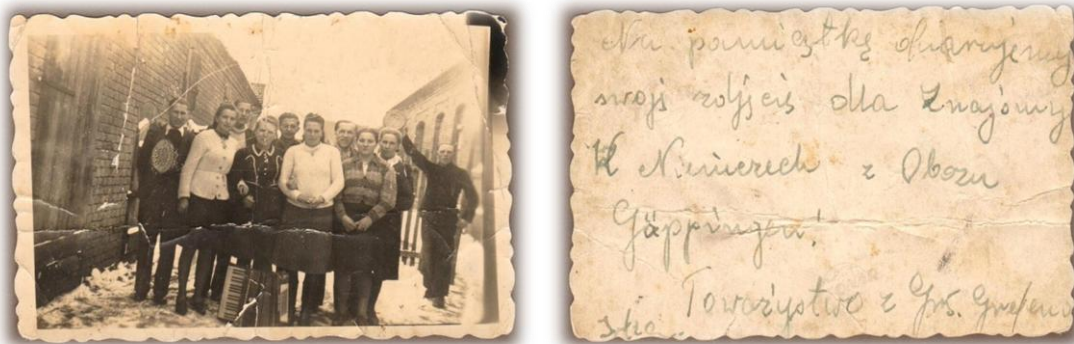 Na pamiątkę ofiarujemy
swoje zdjęcie dla Znajomy
w Niemczech z Obozu
Gäppingen!
Towarzystwo z Grs.